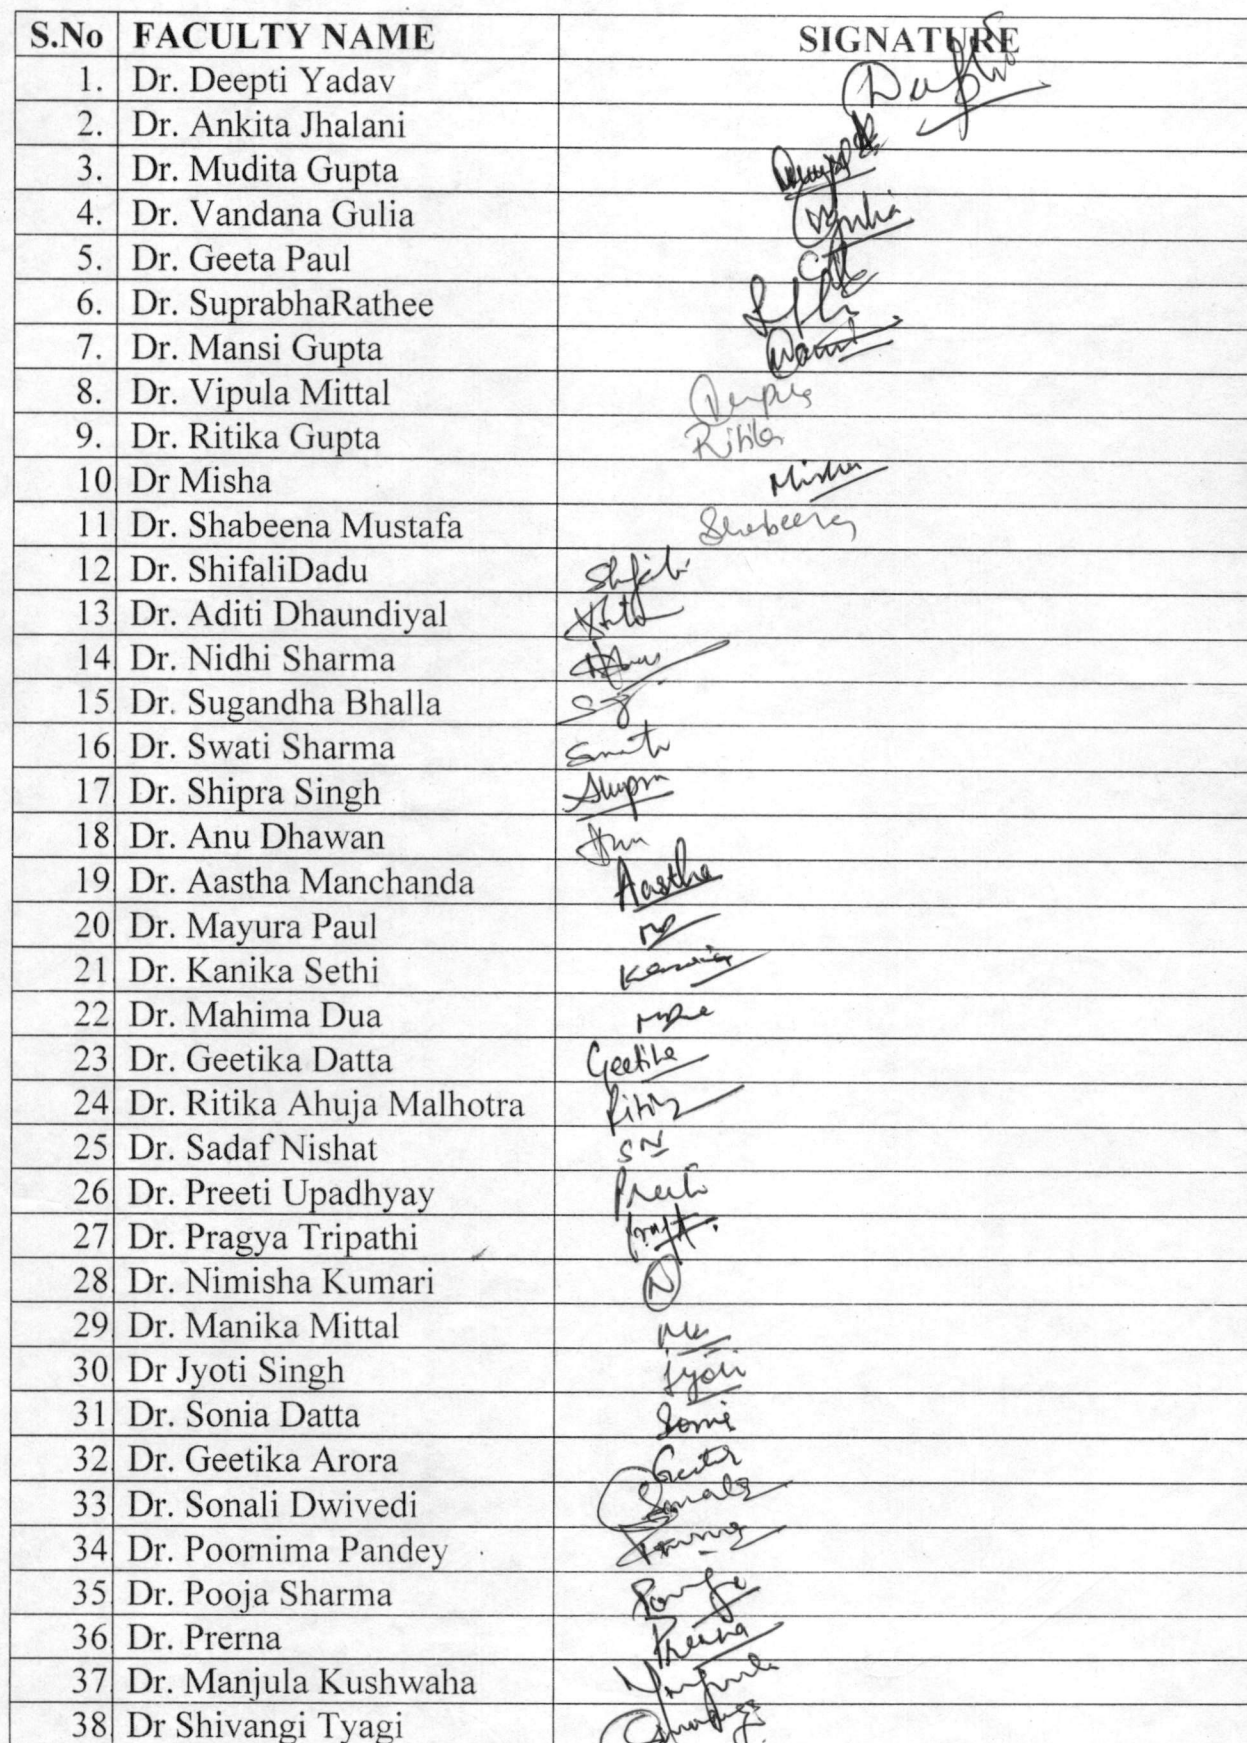 S.No FACULTY NAME SIGNATURE
1. Dr. Deepti Yadav
2. Dr. Ankita Jhalani
3. Dr. Mudita Gupta
4. Dr. Vandana Gulia
5. Dr. Geeta Paul
6. Dr. SuprabhaRathee
7. Dr. Mansi Gupta
8. Dr. Vipula Mittal
9. Dr. Ritika Gupta
10. Dr Misha Misha
11. Dr. Shabeena Mustafa Shabeena
12. Dr. ShifaliDadu Shifali
13. Dr. Aditi Dhaundiyal
14. Dr. Nidhi Sharma
15. Dr. Sugandha Bhalla
16. Dr. Swati Sharma
17. Dr. Shipra Singh Shipra
18. Dr. Anu Dhawan Anu
19. Dr. Aastha Manchanda Aastha
20. Dr. Mayura Paul
21. Dr. Kanika Sethi
22. Dr. Mahima Dua
23. Dr. Geetika Datta Geetika
24. Dr. Ritika Ahuja Malhotra
25. Dr. Sadaf Nishat SN
26. Dr. Preeti Upadhyay Preeti
27. Dr. Pragya Tripathi
28. Dr. Nimisha Kumari N
29. Dr. Manika Mittal
30. Dr Jyoti Singh Jyoti
31. Dr. Sonia Datta Sonia
32. Dr. Geetika Arora
33. Dr. Sonali Dwivedi Sonali
34. Dr. Poornima Pandey
35. Dr. Pooja Sharma
36. Dr. Prerna Prerna
37. Dr. Manjula Kushwaha Manjula
38. Dr Shivangi Tyagi